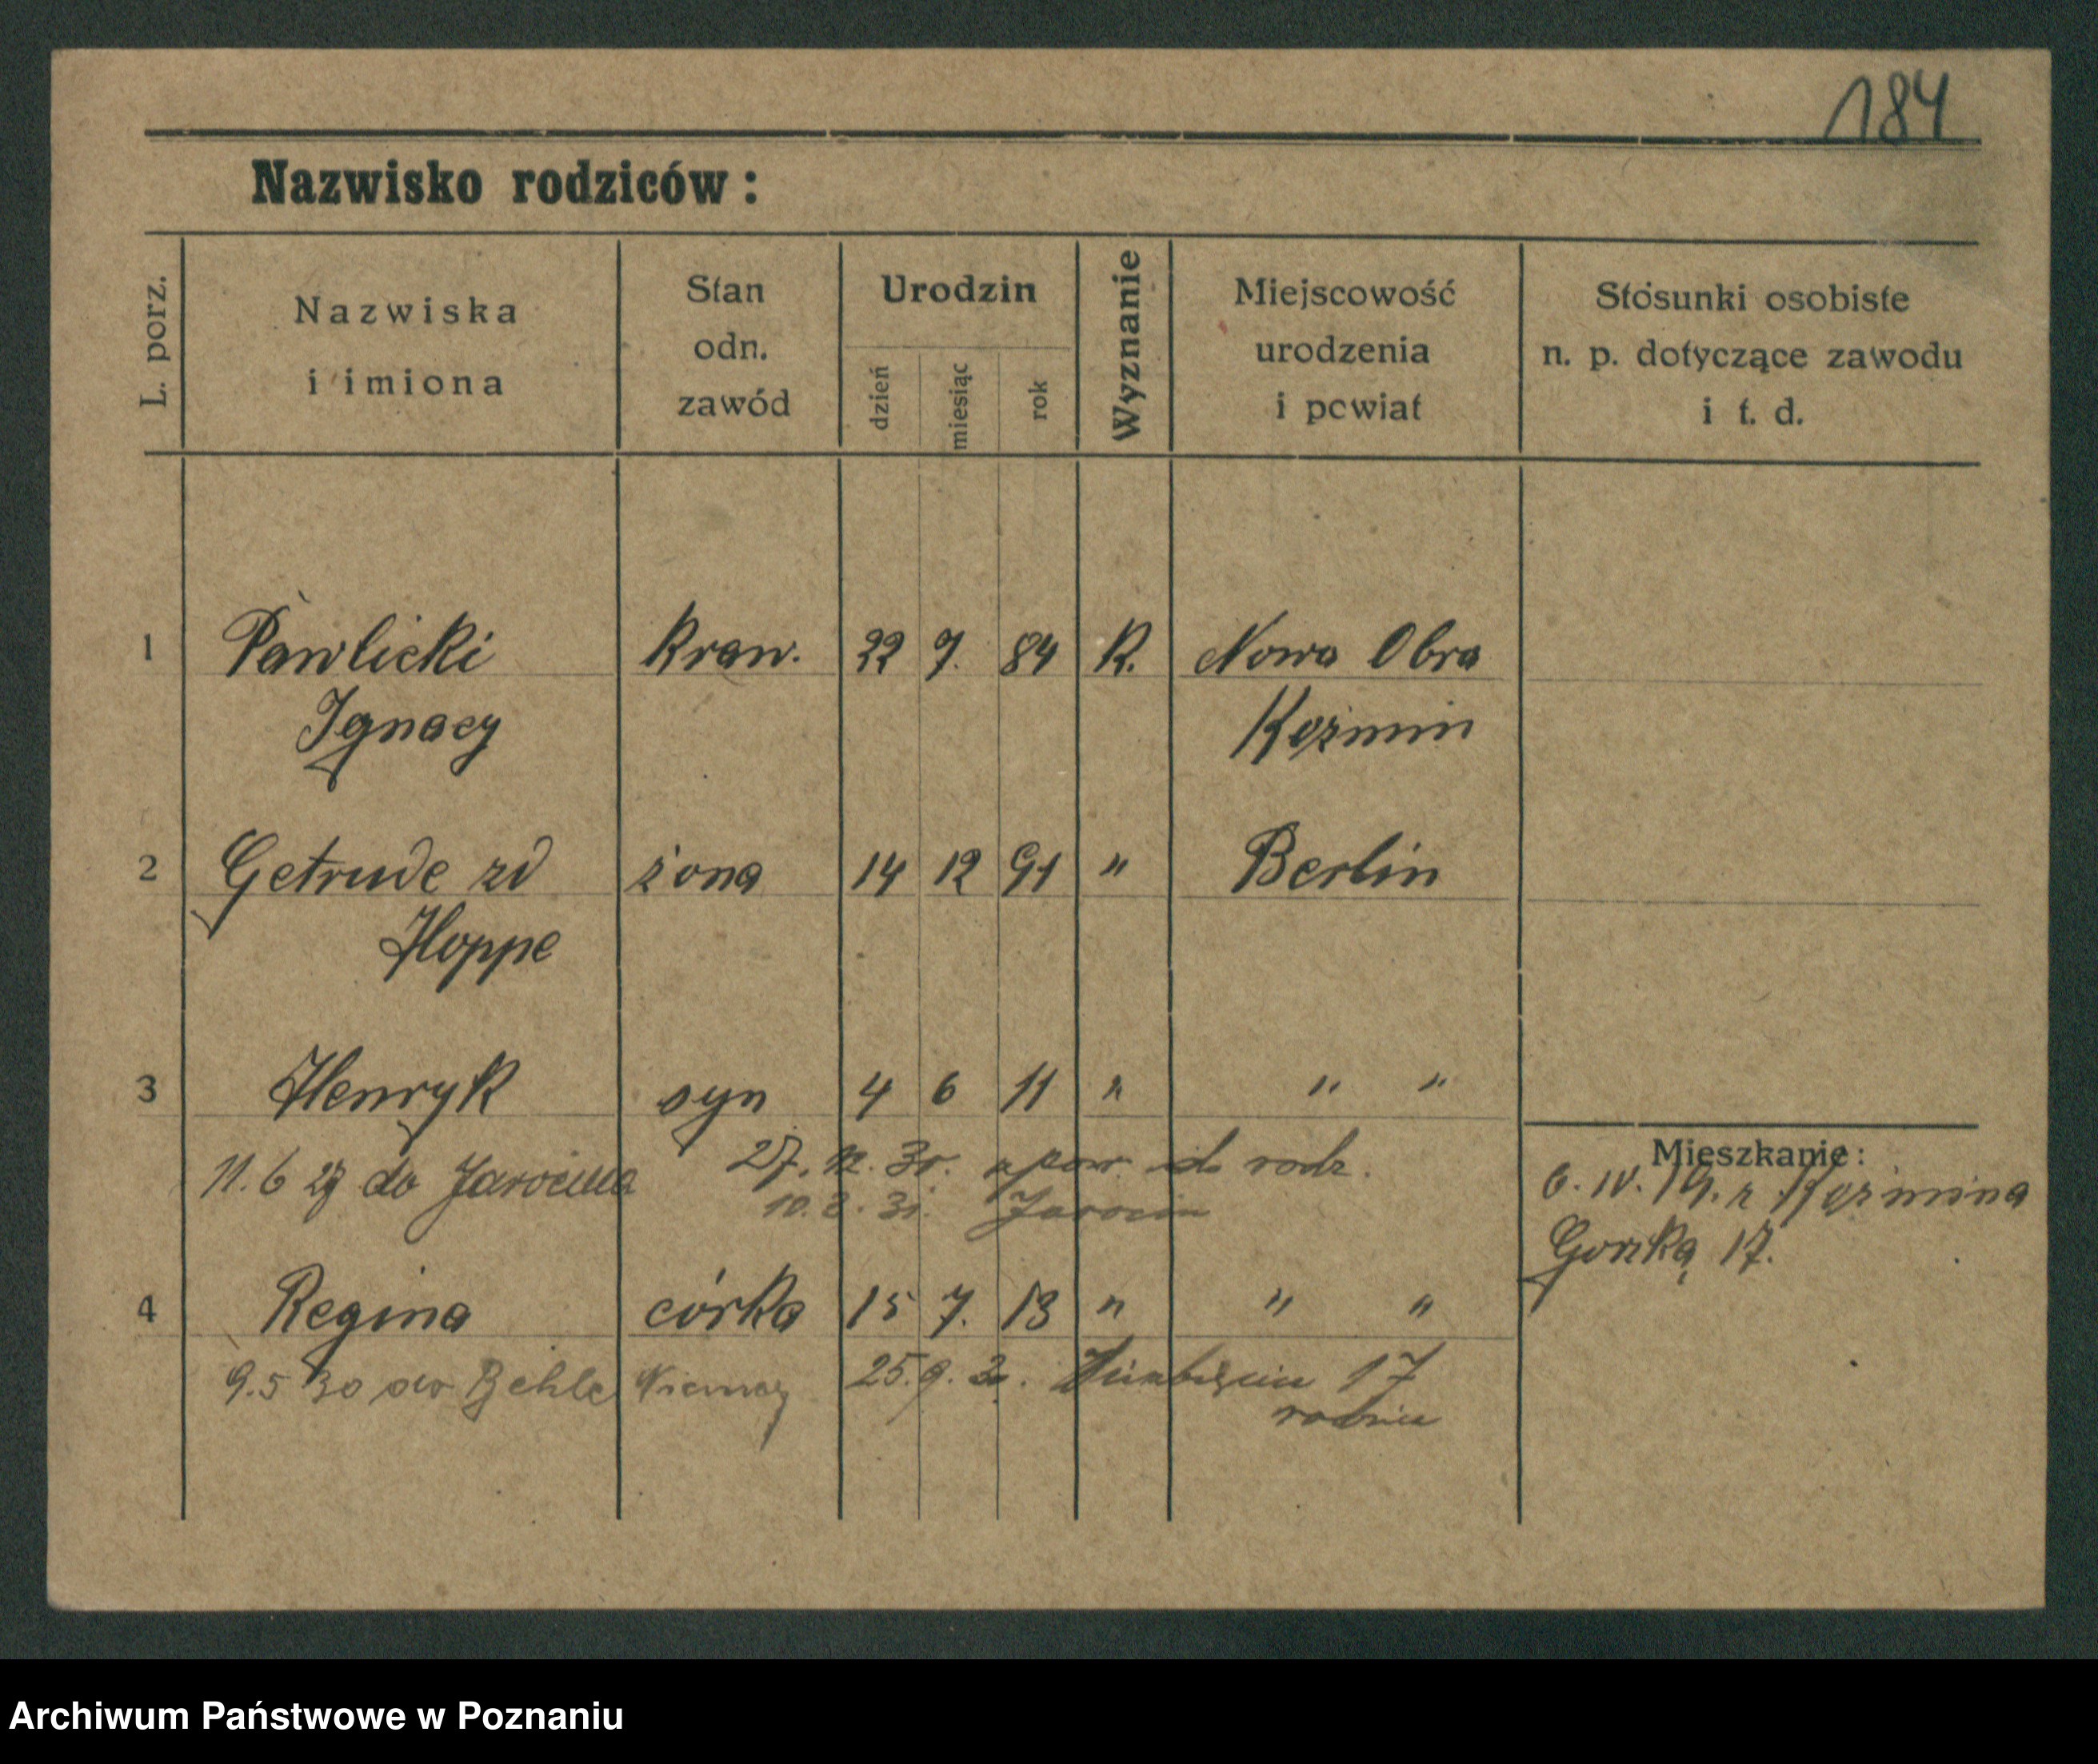 184
Nazwisko rodziców:
L. porz. Nazwiska i imiona Stan odn. zawód Urodzin dzień miesiąc rok Wyznanie Miejscowość urodzenia i powiat Stosunki osobiste n. p. dotyczące zawodu i t. d.
1 Pawlicki Kraw. 22 7. 84 R. Nowa Obra
Ignacy Koźmin
2 Getrude zd żona 14 12 91 " Berlin
Hoppe
3 Henryk syn 4 6 11 " " "
Mieszkanie:
11.6 27 do Jarocina 27. 12. 30. z pow. do rodz.
10. 2. 31. Jarocin
6. IV. 19. z Koźmina
Gorską 17.
4 Regina córka 15 7. 13 " " "
9.5 30 do Behle Niemcy 25. 9. 17
rodzice
Archiwum Państwowe w Poznaniu